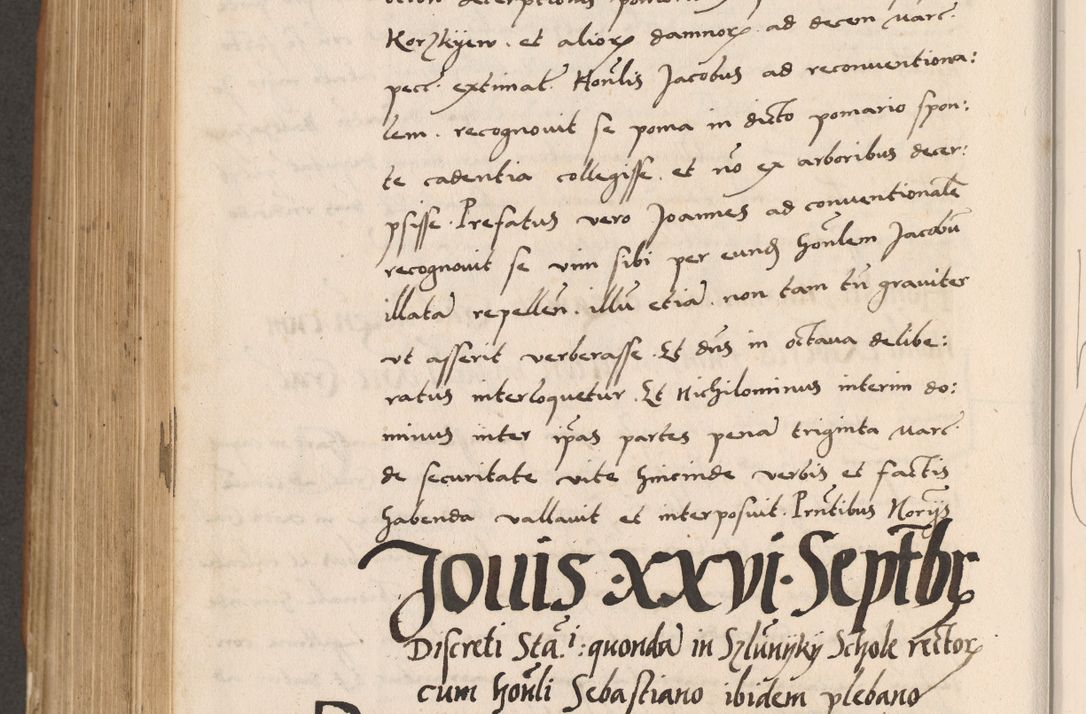 Korzkyew. et aliorꝝ damnorꝝ ad decem marc.
pecc. extimat. Hon̄lis Jacobus ad reconventiona:
lem. recognovit se poma in dicto pomario spon:
te cadentia collegisse. et nō ex arboribus decer:
psisse. Prefatus vero Joannes ad conventionalē
recognovit se vim sibi per eundē honlem Jacobū
illatā repellen. illū etiā. non tam tn̄ graviter
vt asserit verberasse. Et dn̄s in octava delibe:
ratus interloquetur. Et Nichilominus interim do:
minus inter ip̄as partes penā triginta marc.
de securitate vite hincinde verbis et factis
habenda vallavit et interposuit. Prn̄tibus Norijs
Jouis .xxvi. Septēbrꝭ
Discreti Sta.i: quondā in Szlun̄yky Schole rectorꝭ
cum hon̄li Sebastiano ibidem plebano